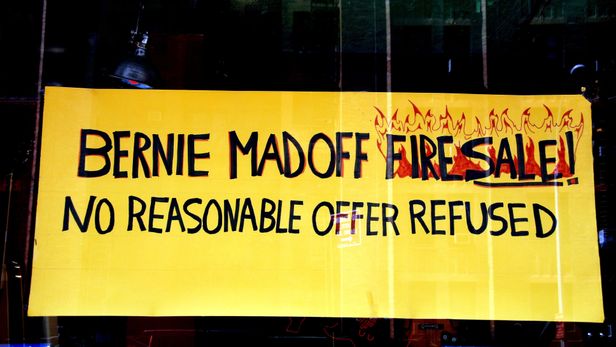 BERNIE MADOFF FIRE SALE!
NO REASONABLE OFFER REFUSED